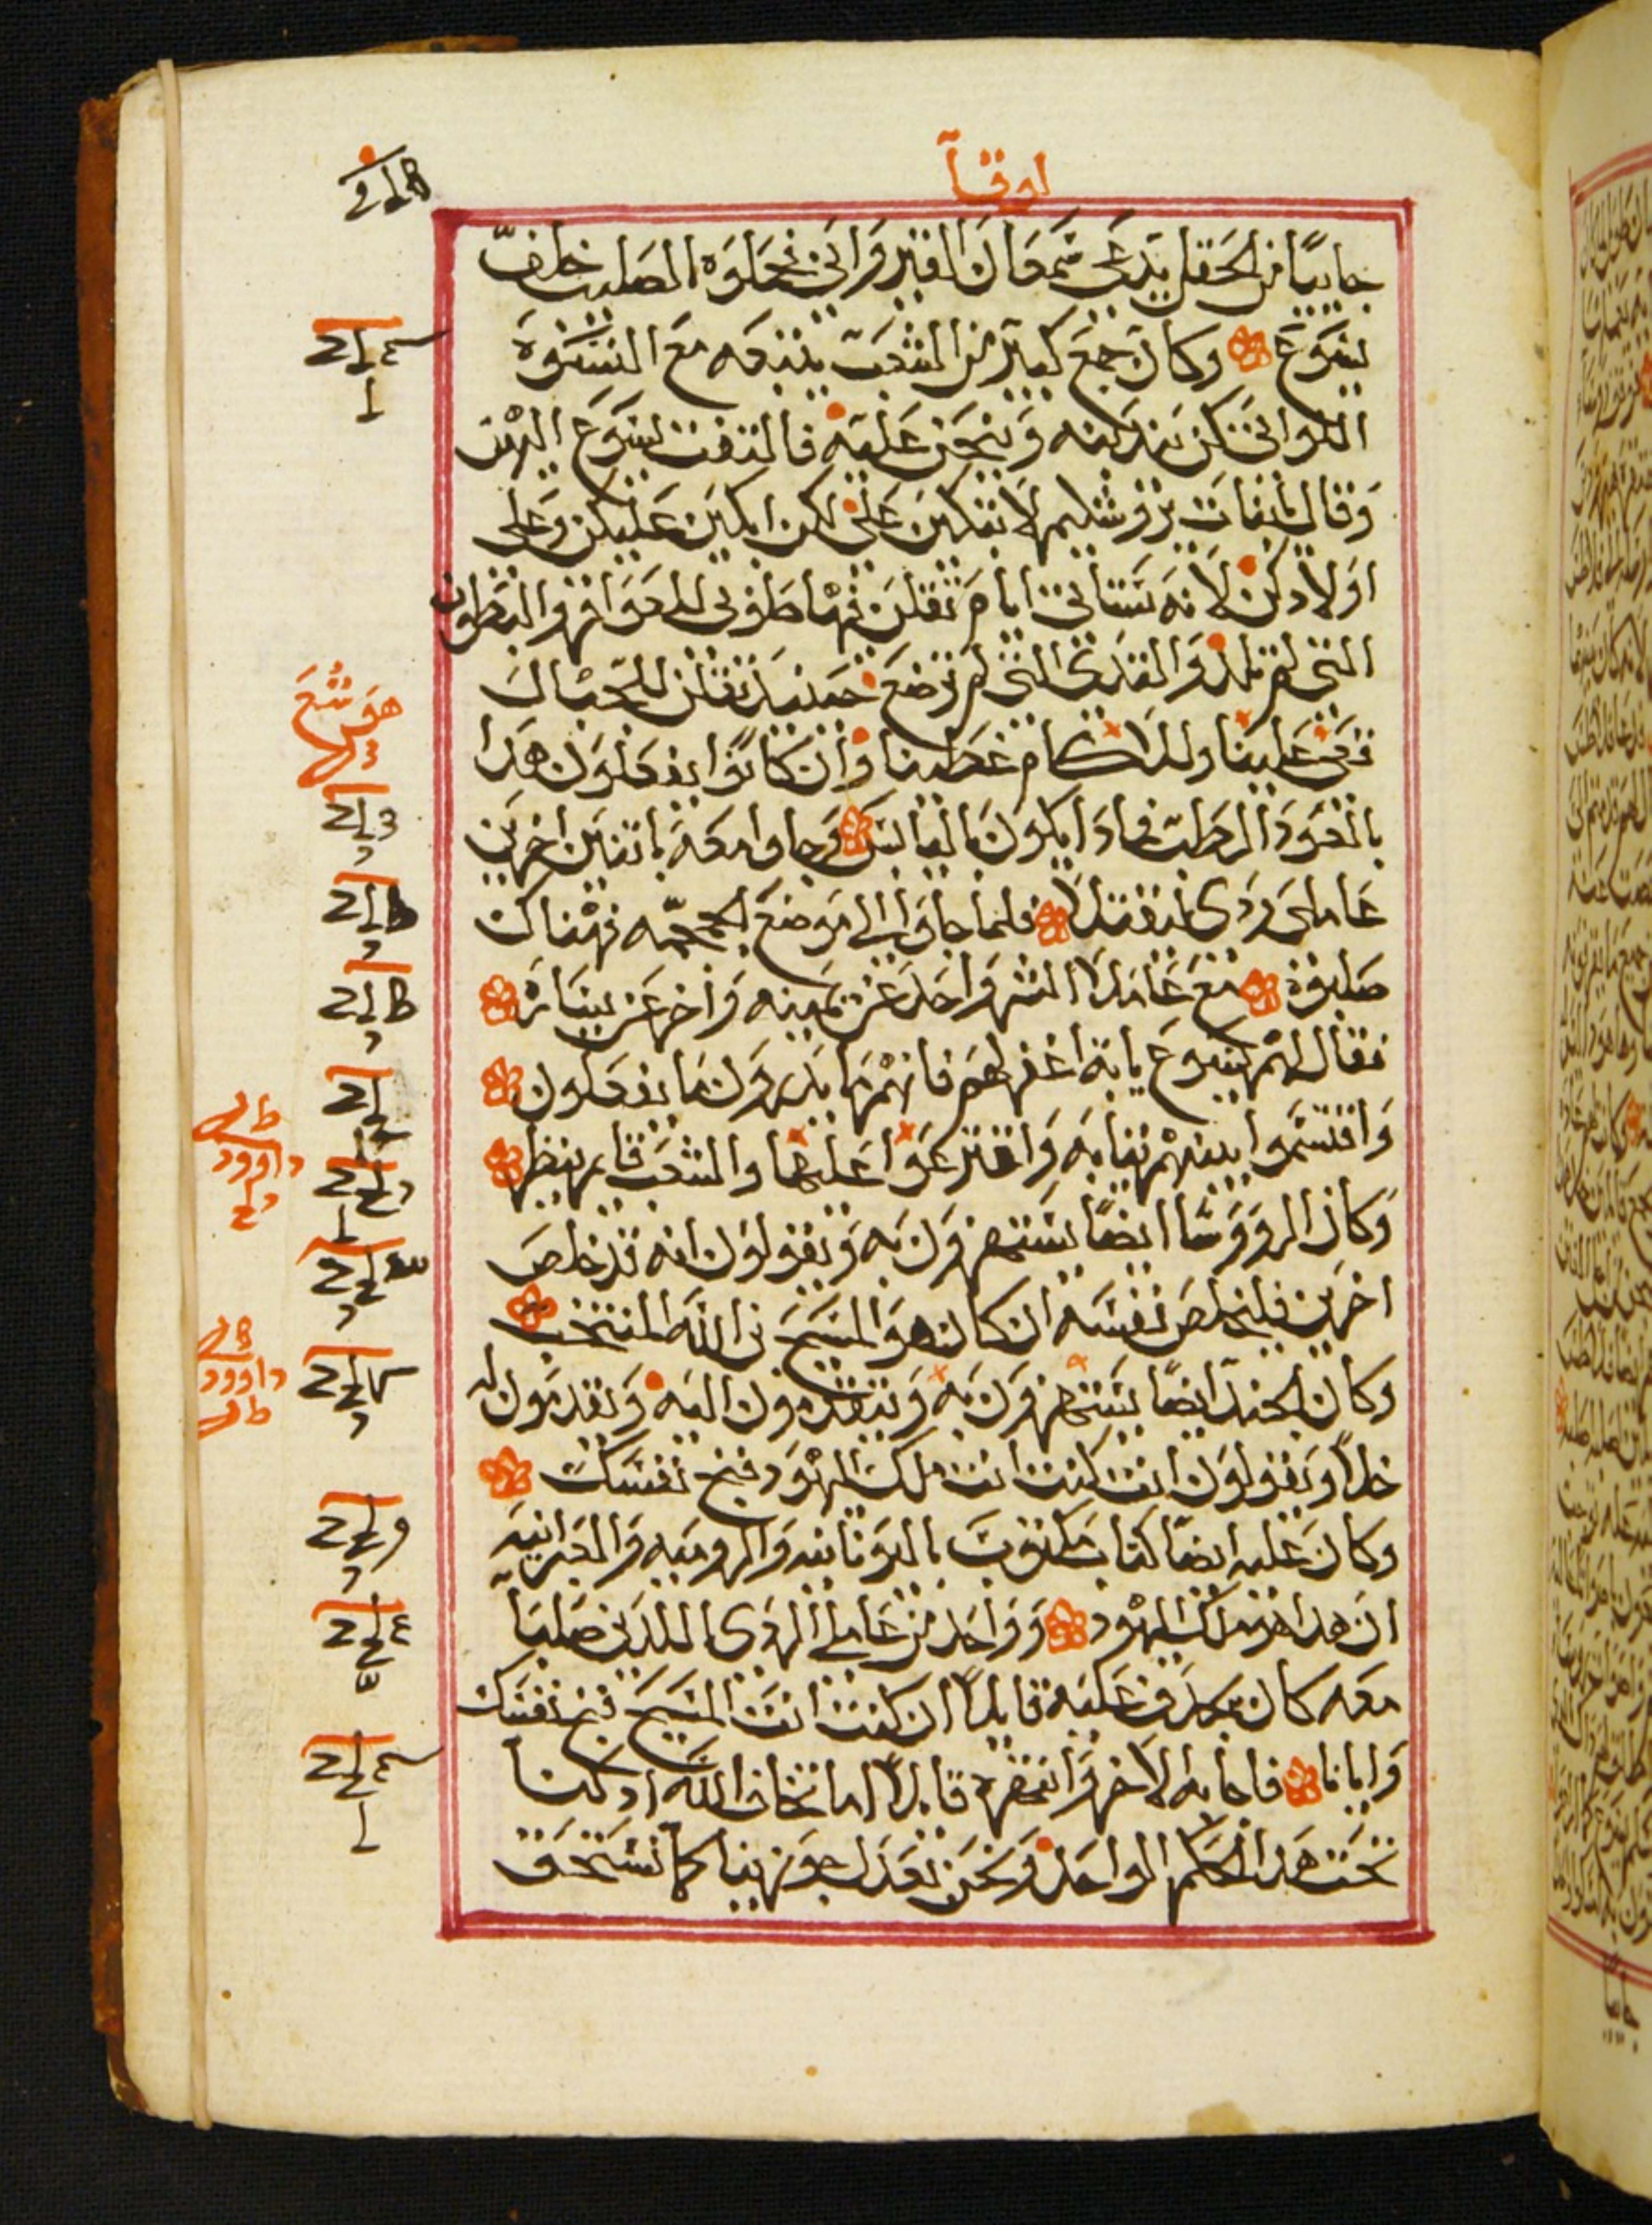 لوقا
جاييًا من الحقل يدعى سمعان القيرواني فحملوه الصليب خلف
يسوع وكان جمع كبير من الشعب يتبعه مع النسوة
اللواتي كن يندبنه وينحن عليه فالتفت يسوع اليهن
وقال يابنات يروشليم لا تبكين علي لكن ابكين عليكن وعلى
اولادكن لانه ستاتي ايام تقلن فيها طوبى للعواقر والبطون
التي لم تلد والثدي التي لم ترضع حينيد تقلن للجبال
قعي علينا وللاكام غطينا وان كانوا يفعلون هدا
بالعود الرطب فمادا يكون باليابس وجاوا معه باتنين اخرين
عاملي ردى ليقتلا فلما جاوا الى موضع الجمجمه فهناك
صلبوه مع عاملا الشر واحد عن يمينه واخر عن يساره
فقال لهم يسوع يابة اغفر لهم فانهم ما يدرون ما يفعلون
واقتسموا بينهم ثيابه واقترعوا عليها والشعب قايم ينظر
وكان الرووسا ايضًا يستهزون به ويقولون انه قد خلص
اخرين فليخلص نفسه ان كان هو المسيح بن الله المنتخب
وكان الجند ايضًا يستهزون به ويتقدمون اليه ويقدمون له
خلاً ويقولون ان كنت انت ملك اليهود فنج نفسك
وكان عليه ايضًا كتاب مكتوب باليونانيه والروميه والعبرانيه
ان هدا هو ملك اليهود وواحد من عاملي الردى اللدين صلبا
معه كان يجدف عليه قايلاً ان كنت انت المسيح فنج نفسك
وايانا فاجابه الاخر وانتهره قايلاً اما تخاف الله اد كنا
تحت هدا الحكم الواحد ونحن بعدل جوزينا كما نستحق
هوشع
داوود
داوود